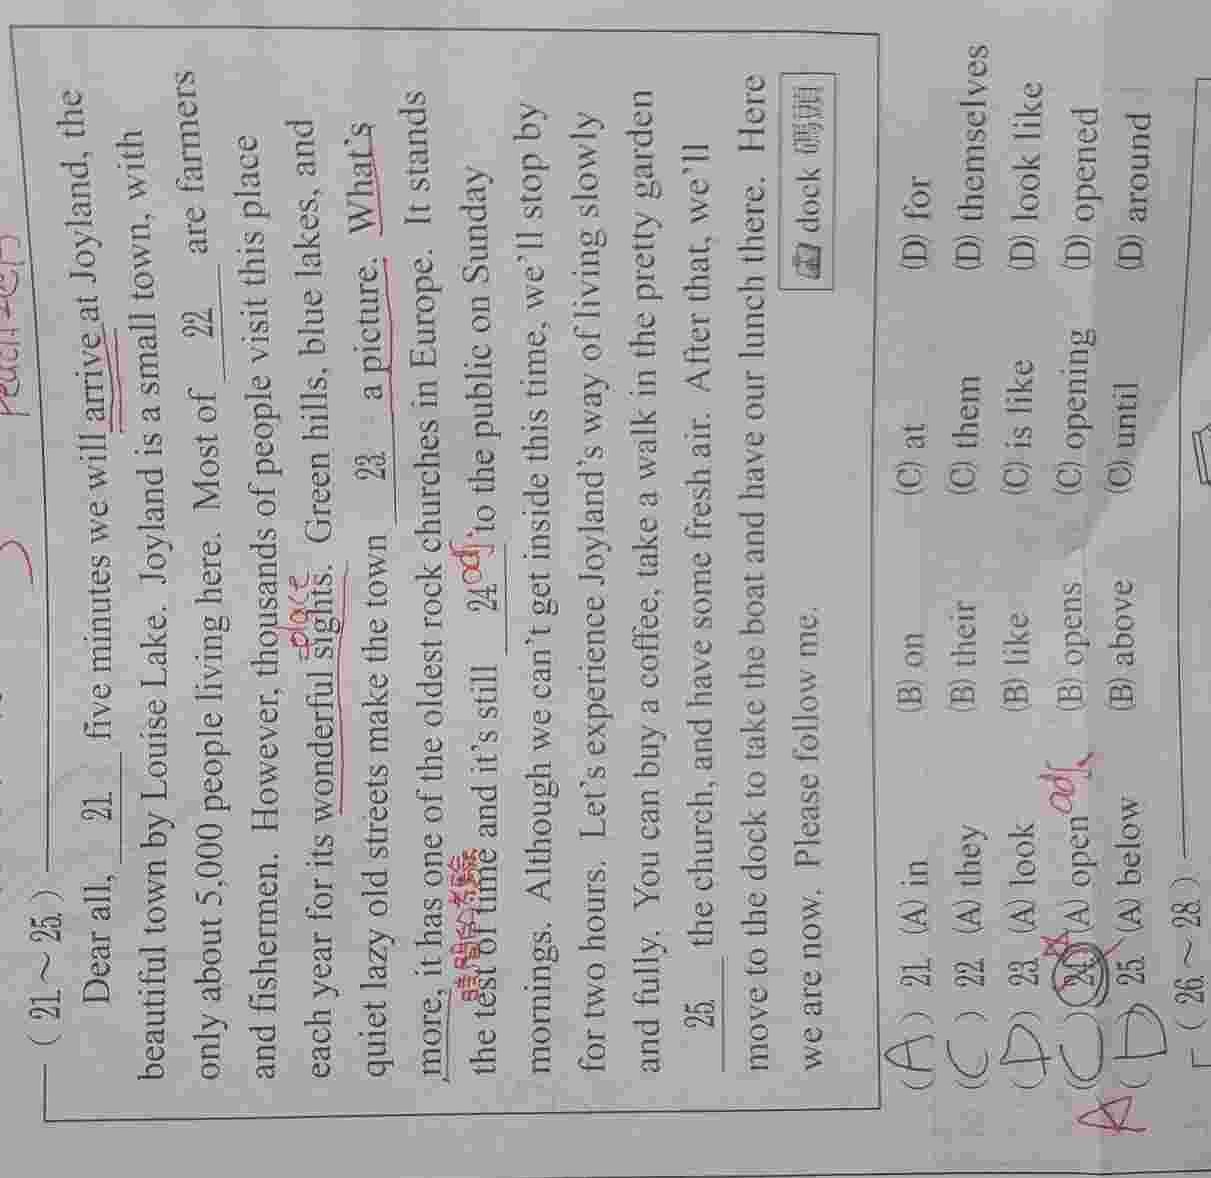 ( 21 ~ 25 )
Dear all, 21 five minutes we will arrive at Joyland, the
beautiful town by Louise Lake. Joyland is a small town, with
only about 5,000 people living here. Most of 22 are farmers
and fishermen. However, thousands of people visit this place
place
each year for its wonderful sights. Green hills, blue lakes, and
quiet lazy old streets make the town 23 a picture. What's
more, it has one of the oldest rock churches in Europe. It stands
the test of time and it's still 24 adj. to the public on Sunday
mornings. Although we can't get inside this time, we'll stop by
for two hours. Let's experience Joyland's way of living slowly
and fully. You can buy a coffee, take a walk in the pretty garden
25 the church, and have some fresh air. After that, we'll
move to the dock to take the boat and have our lunch there. Here
we are now. Please follow me.
dock 碼頭
(A) 21. (A) in (B) on (C) at (D) for
(C) 22. (A) they (B) their (C) them (D) themselves
(D) 23. (A) look (B) like (C) is like (D) look like
(C) 24. (A) open adj. (B) opens (C) opening (D) opened
A (D) 25. (A) below (B) above (C) until (D) around
( 26 ~ 28 )